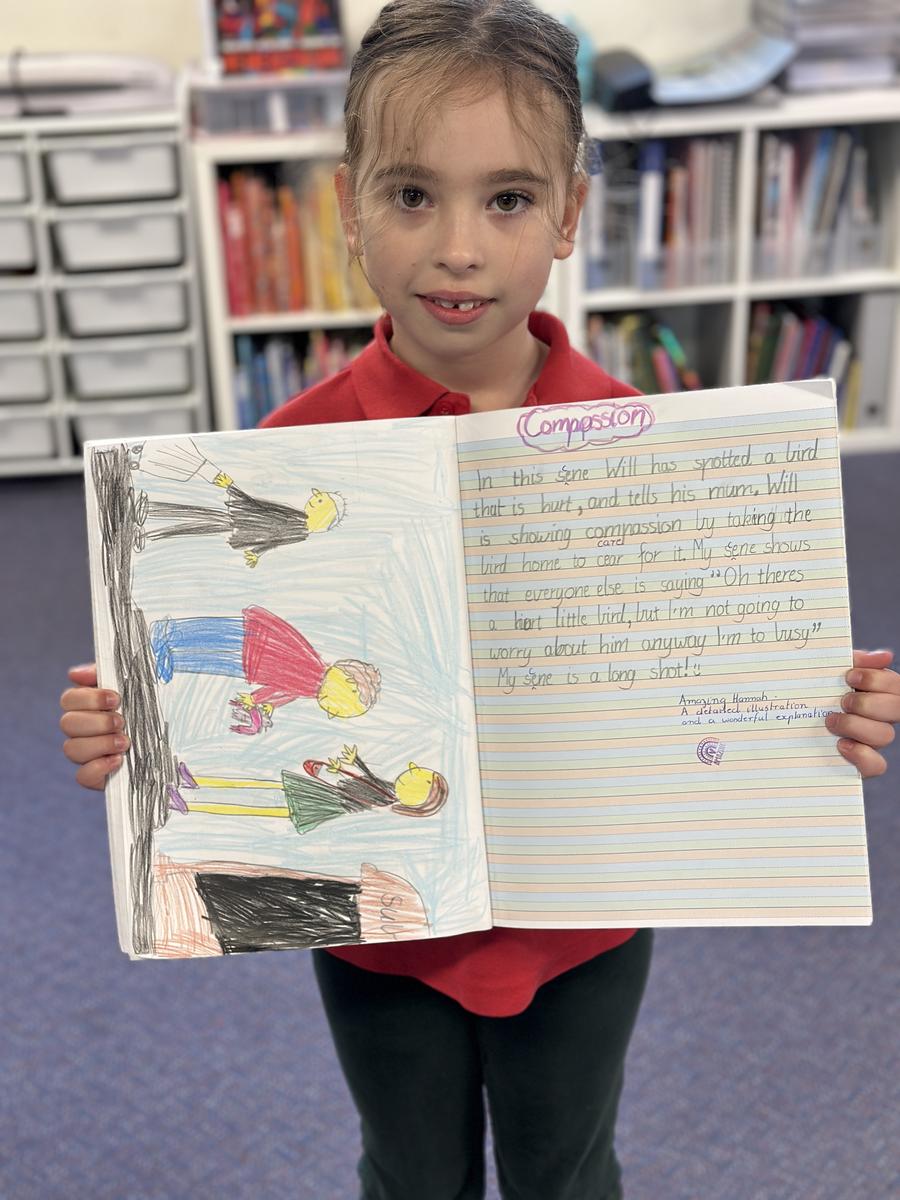 Compassion
In this sene Will has spotted a bird
that is hurt, and tells his mum. Will
is showing compassion by taking the
care
bird home to cear for it. My sene shows
that everyone else is saying "Oh theres
a hort little bird, but I'm not going to
worry about him anyway I'm to busy"
My sene is a long shot!
Amazing Hannah.
A detailed illustration
and a wonderful explanation